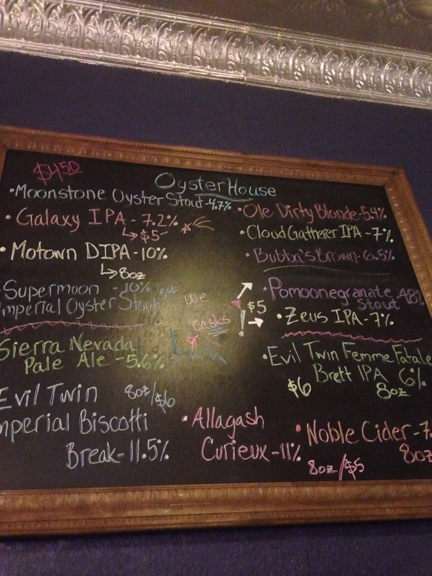 $4.50
OysterHouse
•Moonstone Oyster Stout-4.7%
•Galaxy IPA-7.2%
↳$5
•Motown DIPA-10%
↳8oz
•Supermoon -10%
Imperial Oyster Stout
USE
Sierra Nevada
Pale Ale -5.6%
Evil Twin 8oz/$6
mperial Biscotti
Break-11.5%
•Ole Dirty Blonde-5.4%
•Cloud Gatherer IPA-7%
•Bubba's Brown-6.5%
•Pomoonegranate 4.8%
stout
$5
•Zeus IPA-7%
•Evil Twin Femme Fatale
Brett IPA 6%
$6 8oz
•Allagash
Curieux-11%
•Noble Cider-7.
8oz
8oz/$5